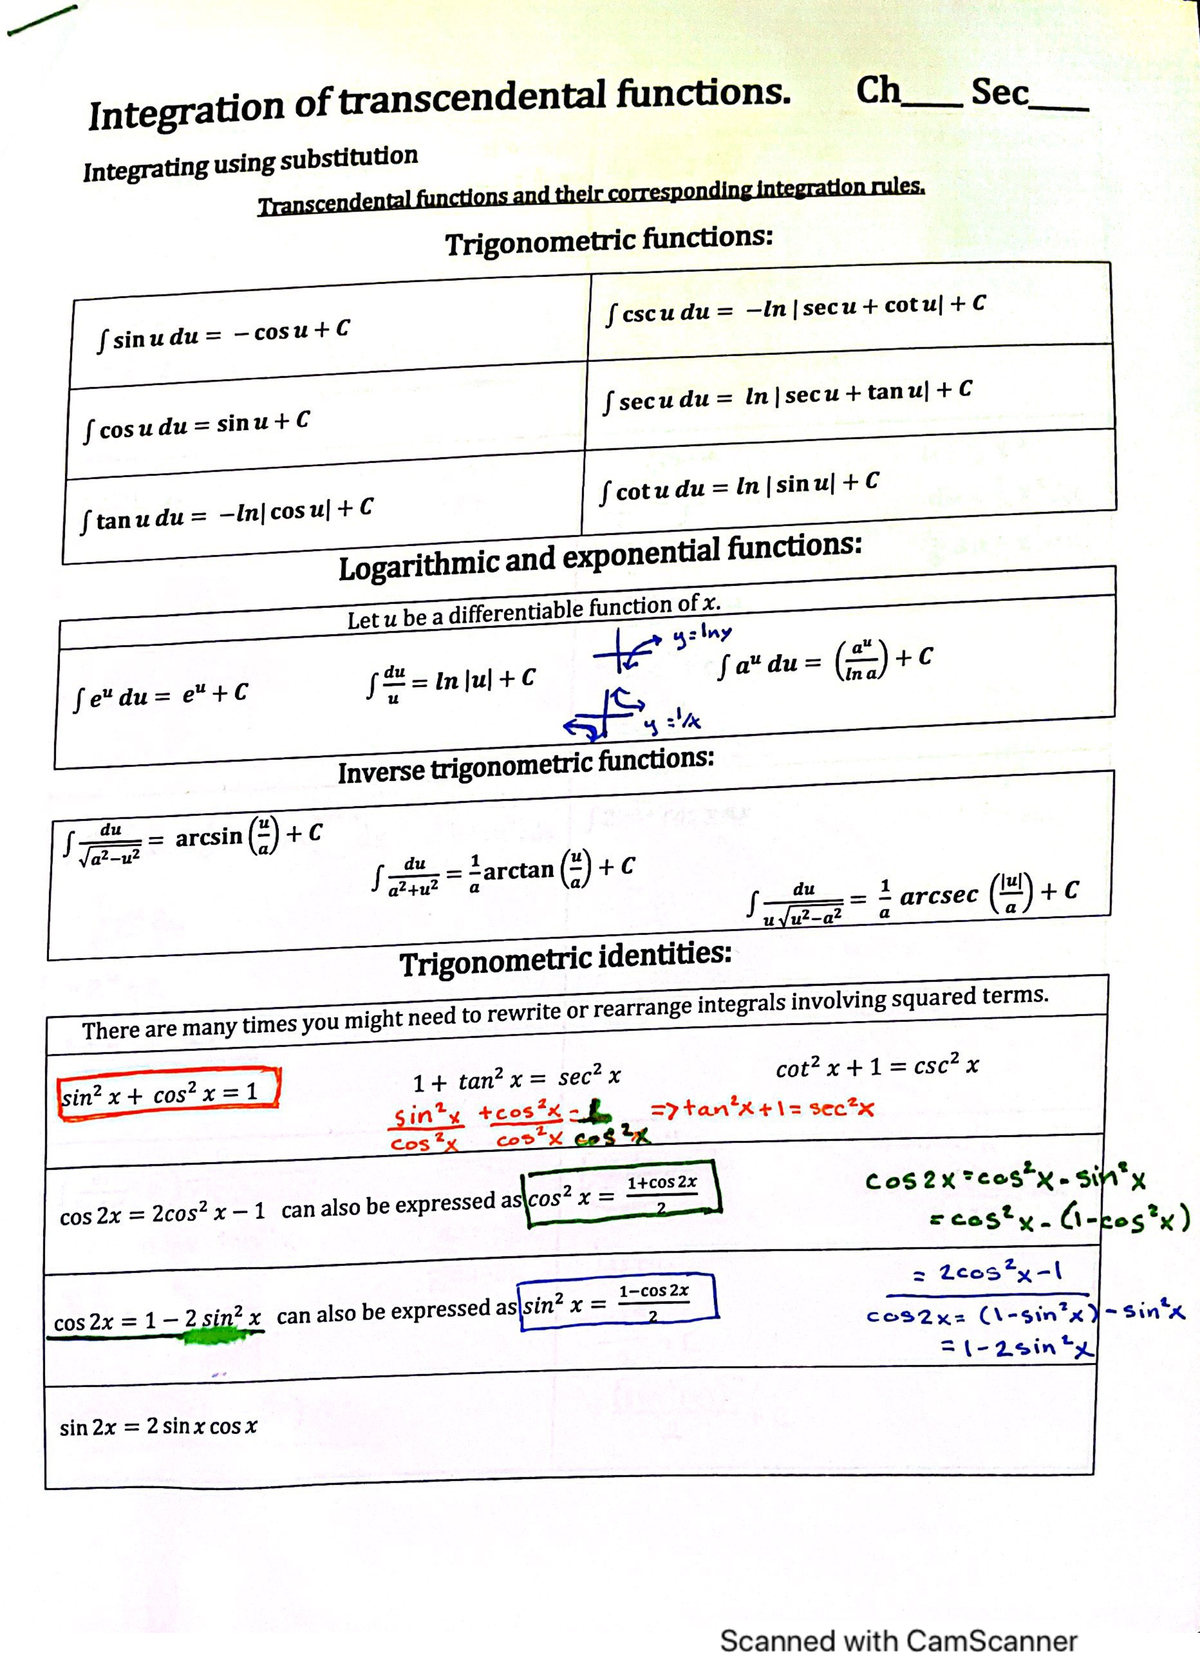 Integration of transcendental functions. Ch___ Sec___
Integrating using substitution
Transcendental functions and their corresponding integration rules.
Trigonometric functions:
∫ sin u du = − cos u + C
∫ csc u du = −ln | sec u + cot u| + C
∫ cos u du = sin u + C
∫ sec u du = ln | sec u + tan u| + C
∫ tan u du = −ln| cos u| + C
∫ cot u du = ln | sin u| + C
Logarithmic and exponential functions:
Let u be a differentiable function of x.
y=lny
∫ e^u du = e^u + C
∫ du/u = ln |u| + C
∫ a^u du = (a^u/ln a) + C
y=1/x
Inverse trigonometric functions:
∫ du/√(a²−u²) = arcsin (u/a) + C
∫ du/(a²+u²) = 1/a arctan (u/a) + C
∫ du/(u√(u²−a²)) = 1/a arcsec (|u|/a) + C
Trigonometric identities:
There are many times you might need to rewrite or rearrange integrals involving squared terms.
sin² x + cos² x = 1
1 + tan² x = sec² x
cot² x + 1 = csc² x
sin²x/cos²x + cos²x/cos²x = 1/cos²x => tan²x+1= sec²x
cos 2x = 2cos² x − 1 can also be expressed as cos² x = (1+cos 2x)/2
cos2x=cos²x-sin²x
=cos²x-(1-cos²x)
= 2cos²x-1
cos 2x = 1 − 2 sin² x can also be expressed as sin² x = (1−cos 2x)/2
cos2x= (1-sin²x)-sin²x
=1-2sin²x
sin 2x = 2 sin x cos x
Scanned with CamScanner